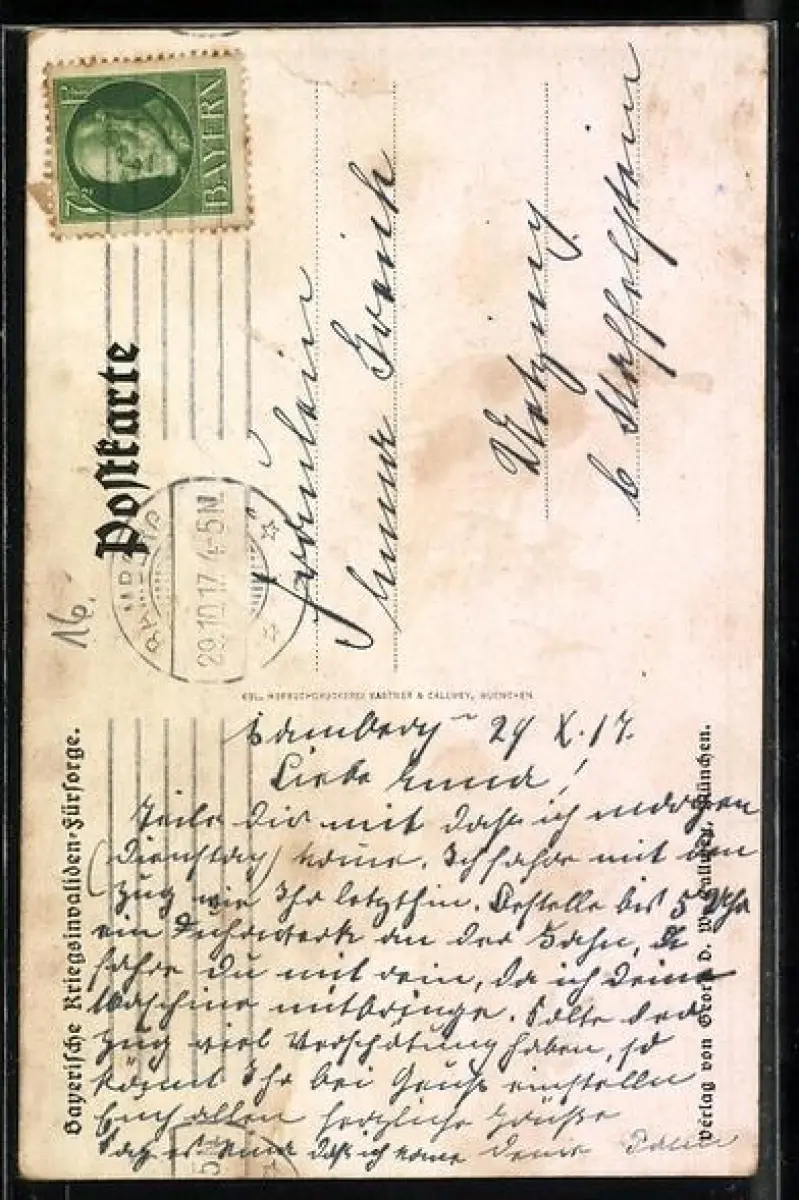 Postkarte
7½ Pf
BAYERN
BAMBERG
29.10.17. 4-5 N.
16.
Fräulein
b Staffelstein
KGL. HOFBUCHDRUCKEREI KASTNER & CALLWEY, MUENCHEN
Bayerische Kriegsinvaliden-Fürsorge.
Verlag von Georg D. W. Callwey, München.
Bamberg 29 X. 17.
Liebe Emma!
Teile dir mit daß ich morgen
(Dienstag) komme. Ich fahre mit dem
Zug wie Ihr letzthin. Bestelle bis 5 Uhr
ein Fuhrwerk an der Bahn,
fahre du mit rein, da ich deine
Maschine mitbringe. Sollte der
Zug viel Verspätung haben, so
könnt Ihr bei einstellen
Euch allen herzliche Grüße
daß ich komme Deine